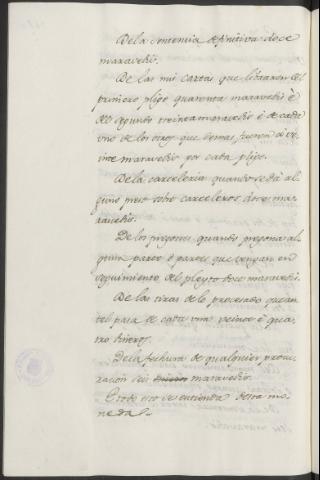 De la sentencia definitiva doce
maravedis.
De las mis cartas que libraron del
primero pligo quarenta maravedis è
del segundo treinta maravedis è de cada
uno de los otros que demas fueren à ve-
inte maravedis por cada pligo.
De la carceleria quando se dà al-
guno preso sobre carceleros doce ma-
ravedis.
De los pregones quando pregona al-
guna parte ò partes que vengan en
seguimiento del pleyto doce maravedis.
De las tiras de lo procesado
de cada una veinte è qua-
tro dineros.
De la fechura de qualquier procu-
racion seis maravedis.
E todo esto se entienda desta mo-
neda.